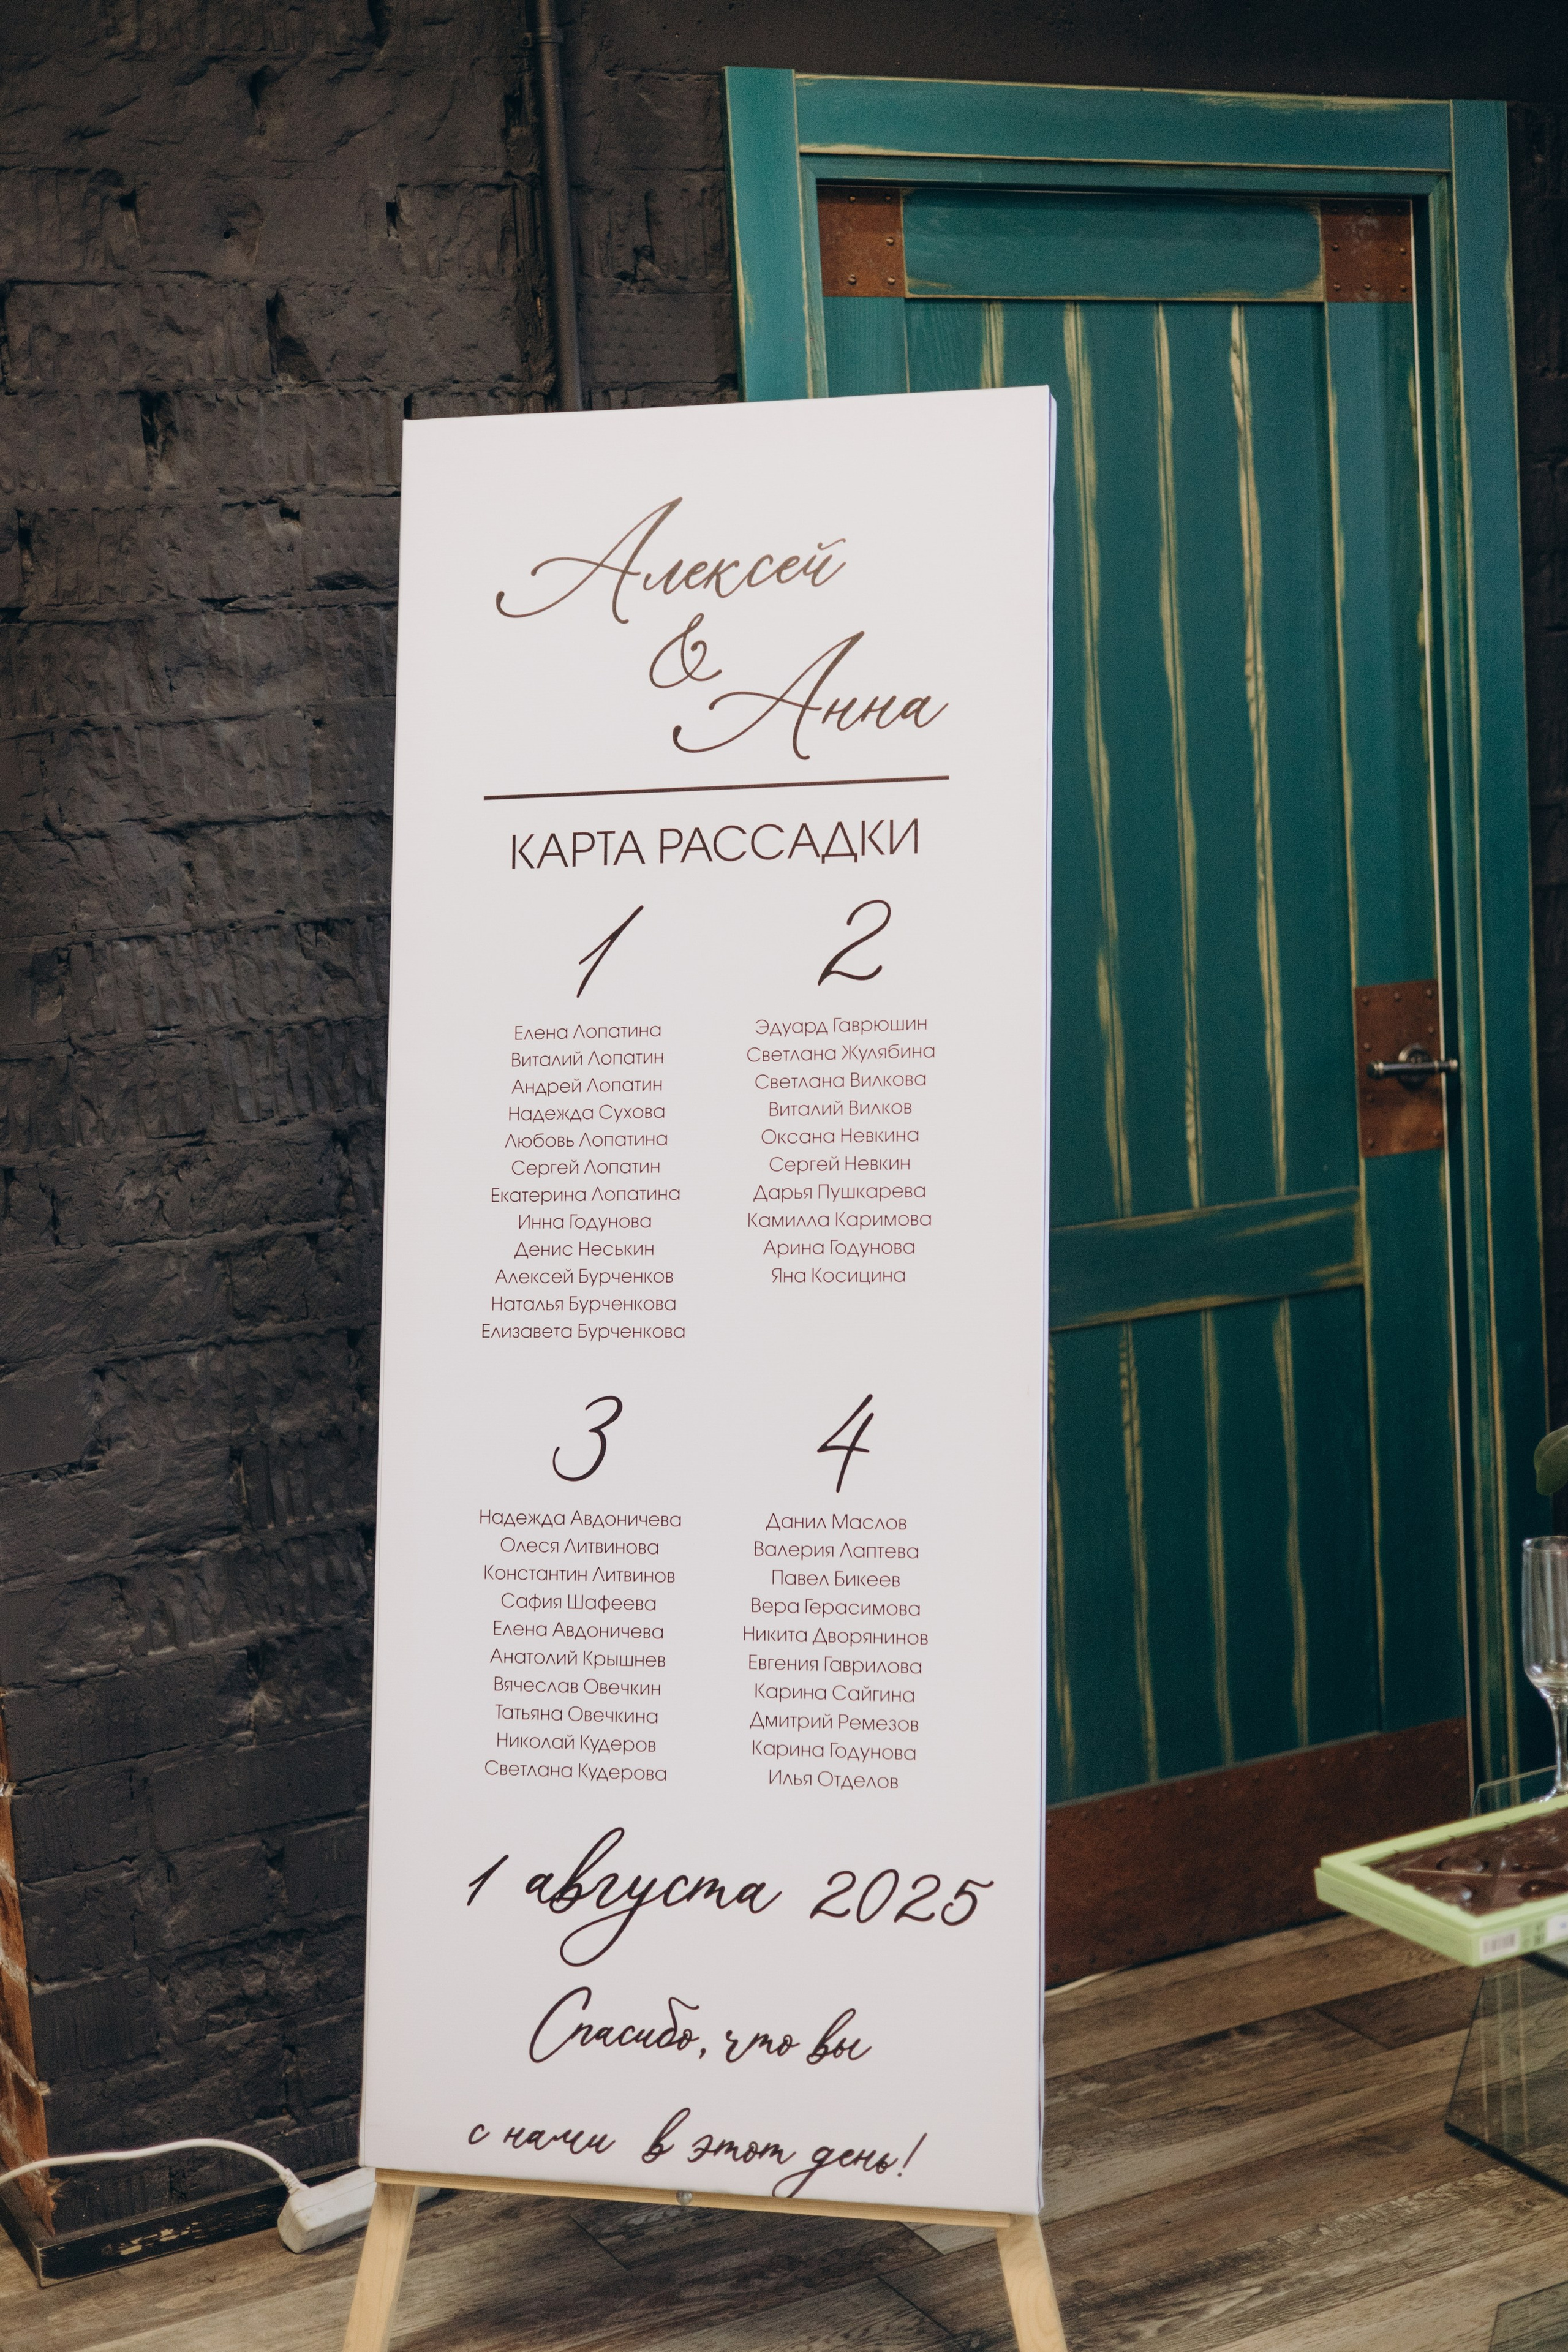 Алексей
&
Анна
КАРТА РАССАДКИ
1
Елена Лопатина
Виталий Лопатин
Андрей Лопатин
Надежда Сухова
Любовь Лопатина
Сергей Лопатин
Екатерина Лопатина
Инна Годунова
Денис Неськин
Алексей Бурченков
Наталья Бурченкова
Елизавета Бурченкова
2
Эдуард Гаврюшин
Светлана Жулябина
Светлана Вилкова
Виталий Вилков
Оксана Невкина
Сергей Невкин
Дарья Пушкарева
Камилла Каримова
Арина Годунова
Яна Косицина
3
Надежда Авдоничева
Олеся Литвинова
Константин Литвинов
Сафия Шафеева
Елена Авдоничева
Анатолий Крышнев
Вячеслав Овечкин
Татьяна Овечкина
Николай Кудеров
Светлана Кудерова
4
Данил Маслов
Валерия Лаптева
Павел Бикеев
Вера Герасимова
Никита Дворянинов
Евгения Гаврилова
Карина Сайгина
Дмитрий Ремезов
Карина Годунова
Илья Отделов
1 августа 2025
Спасибо, что вы
с нами в этот день!